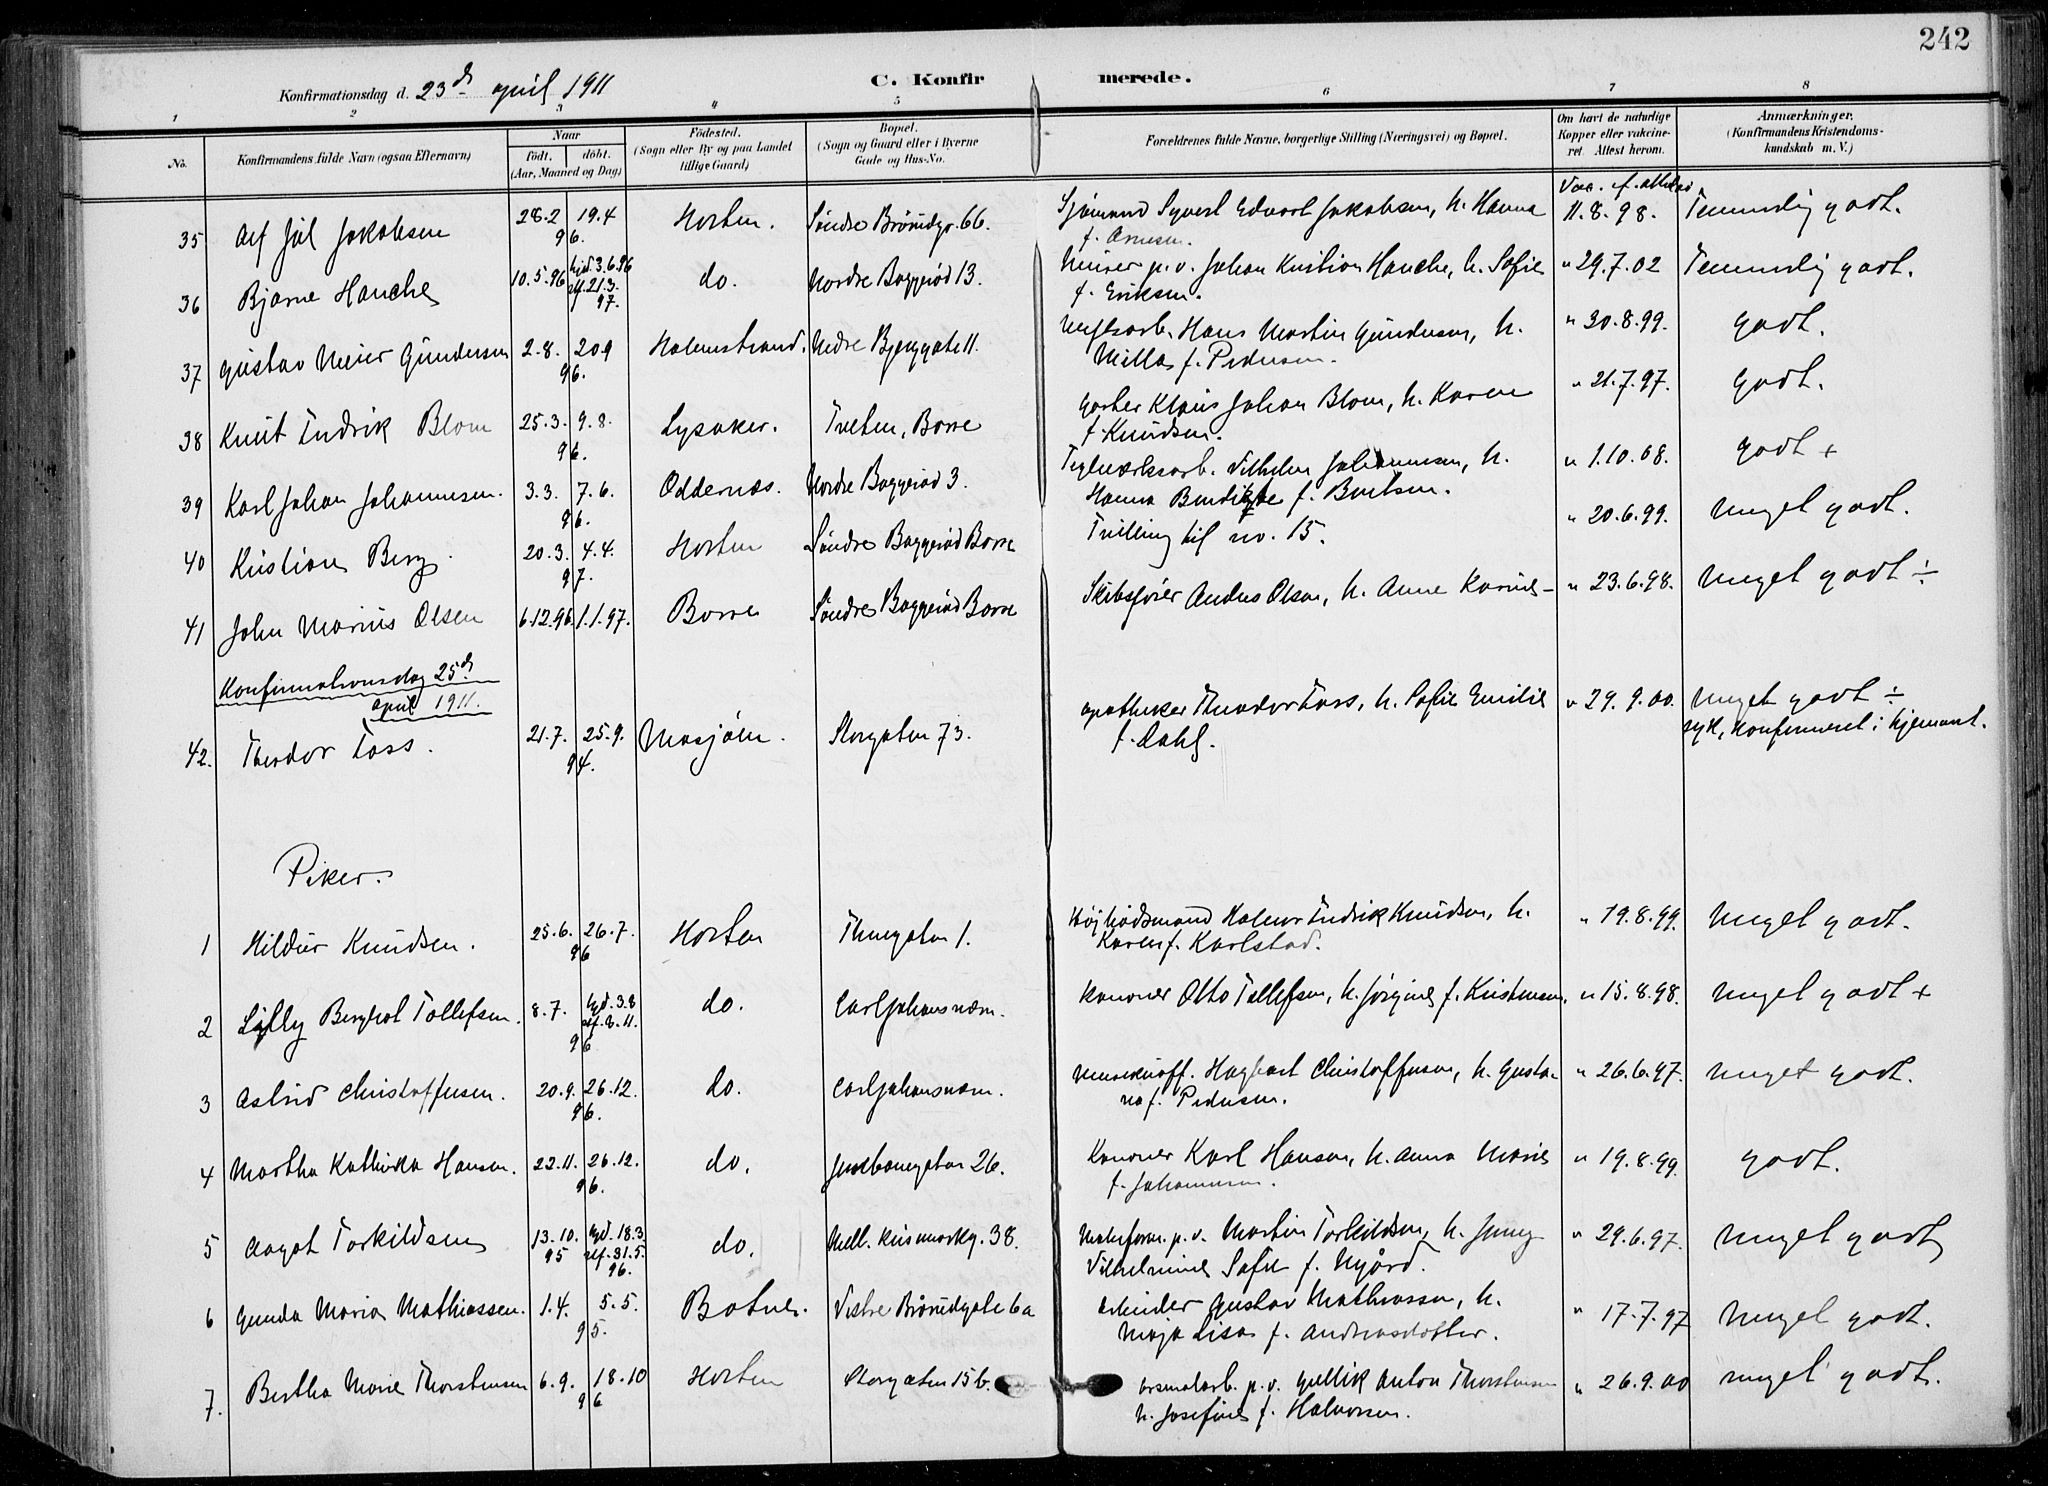 242
C. Konfirmerede.
Konfirmationsdag d. 23d april 1911
1 2 3 4 5 6 7 8
No. Konfirmandens fulde Navn (ogsaa Efternavn) Naar födt. döbt. (Aar, Maaned og Dag) Födested. (Sogn eller By og paa Landet tillige Gaard) Bopæl. (Sogn og Gaard eller i Byerne Gade og Hus-No. Forældrenes fulde Navne, borgerlige Stilling (Næringsvei) og Bopæl. Om havt de naturlige Kopper eller vakcineret. Attest herom. Anmærkninger. (Konfirmandens Kristendomskundskab m. V.)
35 Alf Jul Jakobsen 28.2 19.4 96. Horten. Søndre Brårudgt. 66. Sjømand Syvert Edvart Jakobsen, h. Hanna Vac. f.
f. Arnesen. 11.8.98. Temmelig godt.
36 Bjarne Hanche 10.5.96 hjd. 3.6.96 stf. 21.3. 97. do. Nordre Baggerød 13. Murer p.v. Johan Kristian Hanche, h. Sofie " 29.7.02 Temmelig godt.
f. Eriksen.
37 Gustav Meier Gundersen 2.8. 20.9 96. Holmstrand. Nedre Bjerggate 11. Verftsarb. Hans Martin Gundersen, h. " 30.8.99. godt.
Milla f. Pedersen.
38 Knut Fredrik Blom 25.3. 9.8. 96. Lysaker. Tveten, Borre Gartner Klaus Johan Blom, h. Karen " 21.7.97. godt.
f. Knudsen.
39 Karl Johan Johannesen. 3.3. 7.6. 96. Oddernæs. Nordre Baggerød 3. Teglværksarb. Vilhelm Johannesen, h. " 1.10.08. godt +
Hanna Bendikte f. Bentsen.
40 Kristian Berg. 20.3. 4.4. 97. Horten Søndre Baggerød Borre Tvilling til no. 15. " 20.6.99. meget godt.
41 John Marius Olsen 6.12.96. 1.1.97. Borre Søndre Baggerød Borre Skibsfører Anders Olsen, h. Anne Karine - " 23.6.98. meget godt ÷
Konfirmationsdag 25d
april 1911.
42. Theodor Foss. 21.7. 25.9. 94. Mosjøen. Storgaten 73. apotheker Theodor Foss, h. Sofie Emilie " 29.9.00. meget godt ÷
f. Dahl. syk, konfirmeret i hjemmet.
Piker.
1 Hildur Knudsen. 25.6. 26.7. 96 Horten Thuegaten 1. Højbådsmand Halvor Fredrik Knudsen, h. " 19.8.99. meget godt.
Karen f. Karlstad.
2 Lilly Bergliot Tollefsen. 8.7. hjd. 3.8 stf. 8.11. 96 do. Carljohansværn. Kanoner Otto Tollefsen, h. Jørgine f. Kristensen, " 15.8.98. meget godt +
3 Astrid Christoffersen. 20.9. 26.12. 96. do. Carljohansværn. Minerunderoff. Hagbart Christoffersen, h. Gusta- " 26.6.97. meget godt.
va f. Pedersen.
4 Martha Kathinka Hansen. 22.11. 26.12. 96. do. Jernbanegaten 26. Kanoner Karl Hansen, h. Anna Marie " 19.8.99. godt.
f. Johannesen.
5 Aagot Torkildsen 13.10. 95 hjd. 18.3 stf. 31.5 96. do. Mell. Keisemarkg. 38. Materforv. p.v. Martin Torkildsen, h. Jenny " 29.6.97. meget godt
Vilhelmine Sofie f. Nygård.
6 Gunda Maria Mathiassen. 1.4. 5.5. 95. Botne. Vestre Brårudgate 6a Arbeider Gustav Mathiassen, h. " 17.7.97 meget godt.
Maja Lisa f. Andreasdotter.
7. Bertha Marie Thorstensen 6.9. 18.10 96 Horten Storgaten 15b. Arsenalarb. p.v. Gullik Anton Thorstensen " 26.9.00 meget godt.
h. Josefine f. Halvorsen.